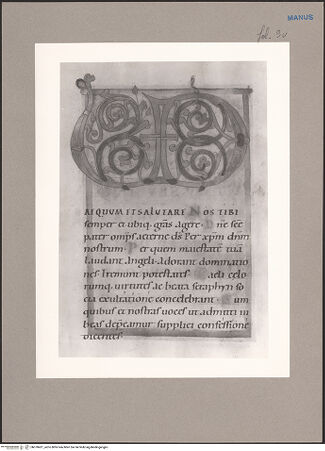 MANUS
fol. 9v
AEQUUM ET SALUTARE NOS TIBI
semper et ubiq. gras agere. Dne sce
pater omps aeterne ds. Per xpm dnm
nostrum. Per quem maiestate tuā
laudant angeli. Adorant dominatio
nes. tremunt potestates. Caeli celo
rumq. virtutes ac beata seraphyn so
cia exultatione concelebrant. Cum
quibus et nostras voces ut admitti iu
beas depcamur supplici confessione
dicentes.